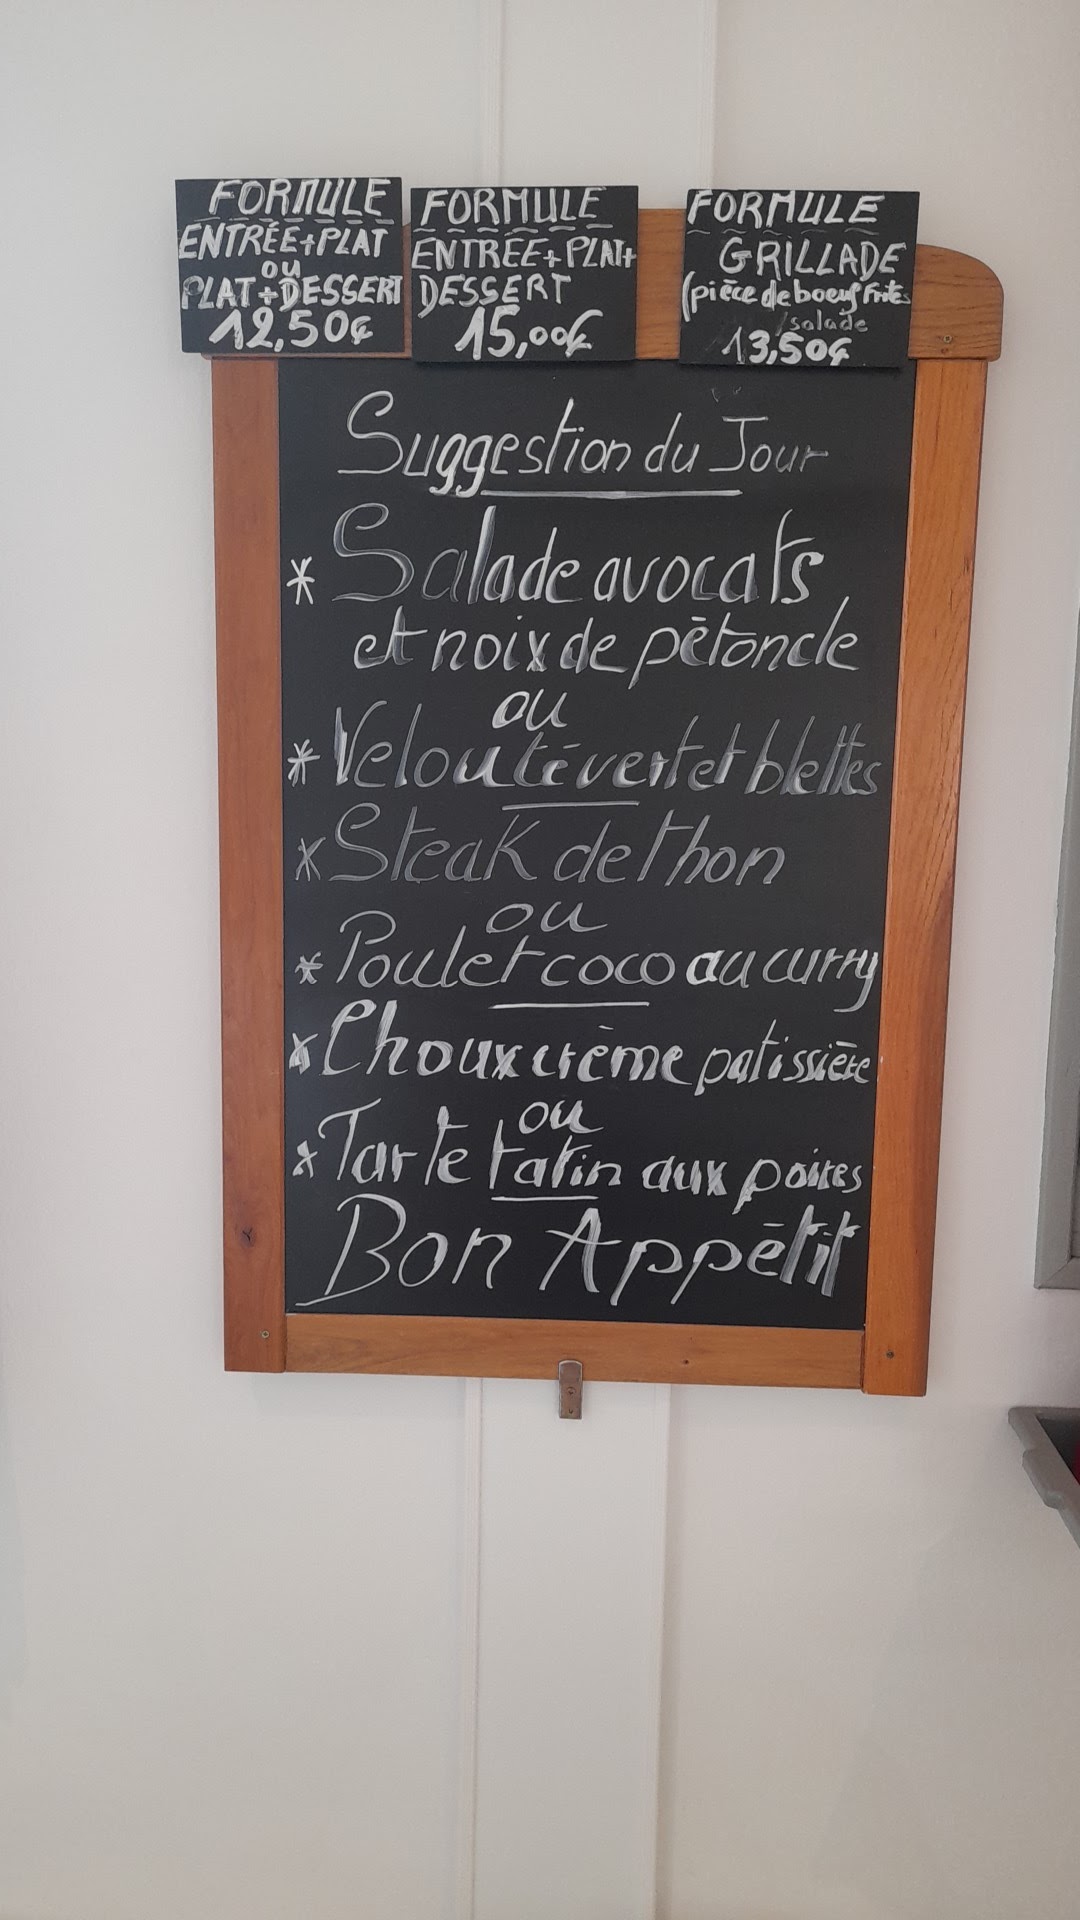 FORMULE
ENTRÉE+PLAT
ou
PLAT+DESSERT
12,50€
FORMULE
ENTRÉE+PLAT+
DESSERT
15,00€
FORMULE
GRILLADE
(pièce de boeuf frites
/salade
13,50€
Suggestion du Jour
* Salade avocats
et noix de pétoncle
ou
* Velouté vert et blettes
* Steak de thon
ou
* Poulet coco au curry
* Choux crème patissière
ou
* Tarte tatin aux poires
Bon Appétit